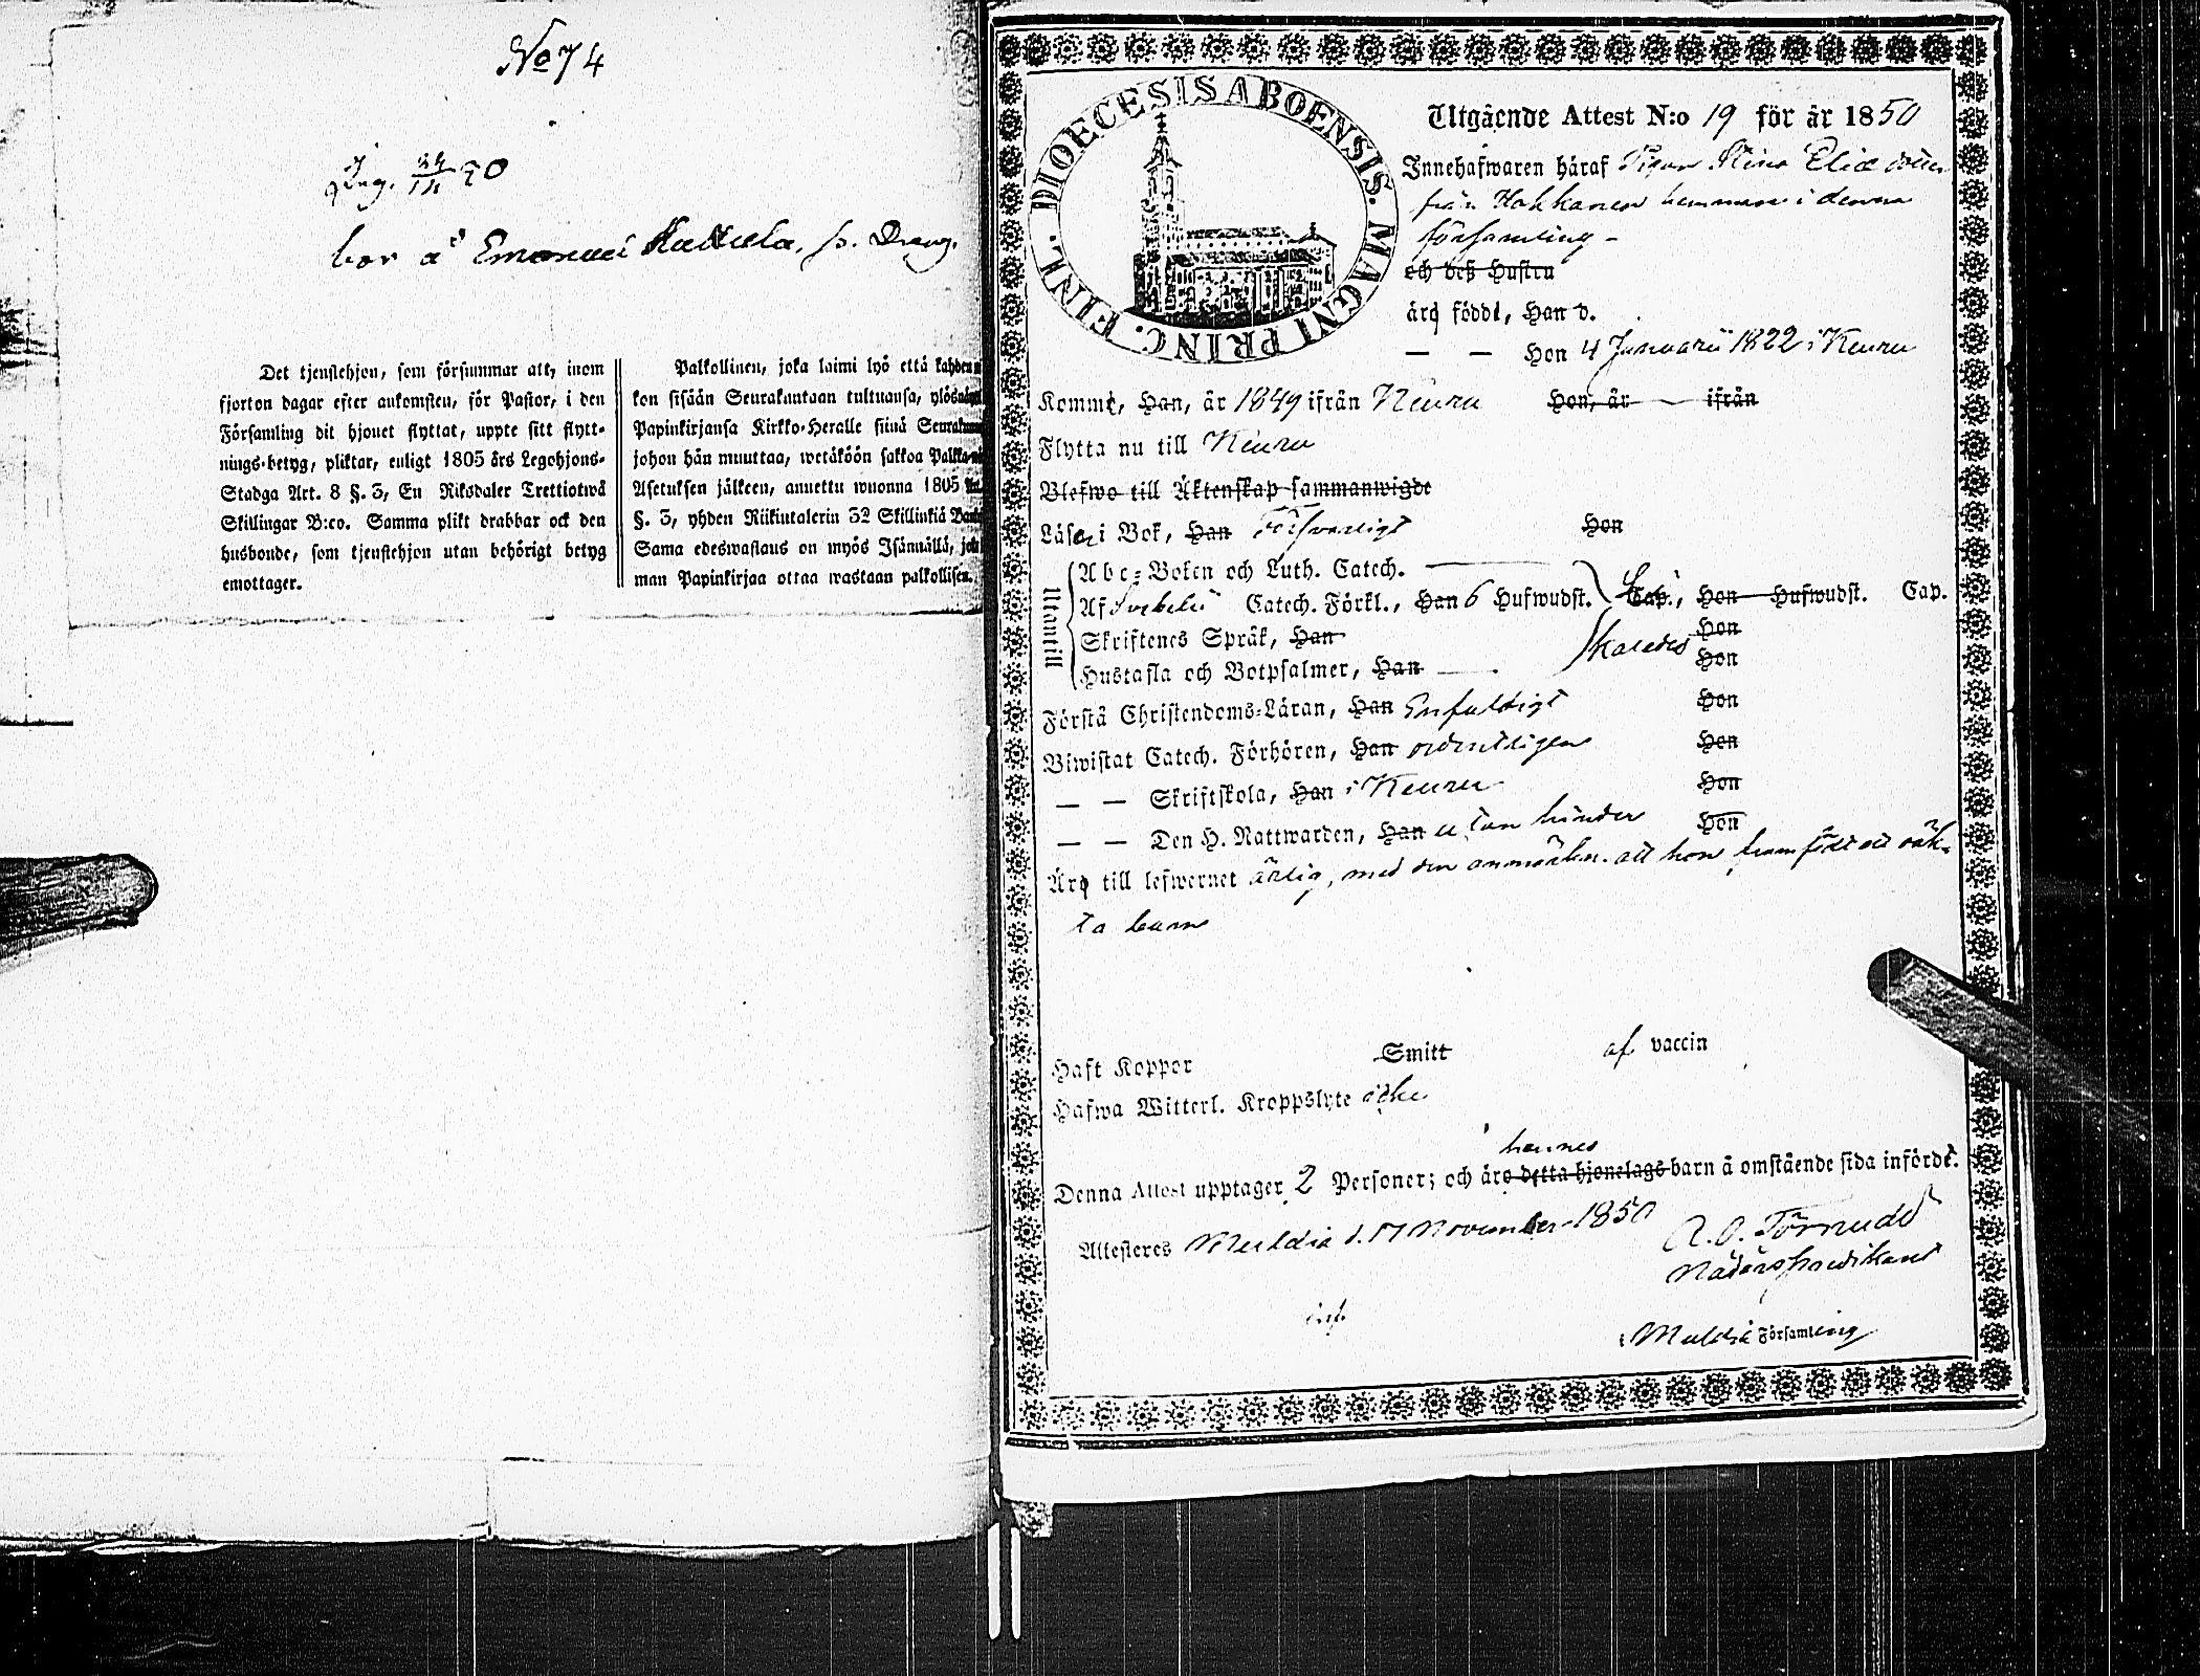 No 74
Ing. 24/11 50
bor å Emanuel Kallela, s. Dräng.
Det tjenstehjon, som försummar att, inom
fjorton dagar efter ankomsten, för Pastor, i den
Församling dit hjonet flyttat, uppte sitt flytt-
nings-betyg, pliktar, enligt 1805 års Legohjons-
Stadga Art. 8 §. 3, En Riksdaler Trettiotwå
Skillingar B:co. Samma plikt drabbar ock den
husbonde, som tjenstehjon utan behörigt betyg
emottager.
Palkollinen, joka laimi lyö että kahden
kon sisään Seurakuntaan tultuansa, ylösnäyt
Papinkirjansa Kirkko-Heralle siinä Seurakun
johon hän muuttaa, wetäköön sakkoa Palkka
Asetuksen jälkeen, annettu wuonna 1805
§. 3, yhden Riikintalerin 32 Skillinkiä Banko
Sama edeswastaus on myös Isännällä, jok
man Papinkirjaa ottaa wastaan palkollisen.
DIOECESIS ABOENSIS. MAGNI PRINC. FINL.
Utgående Attest N:o 19 för år 1850
Innehafwaren häraf Pigan Stina Eliædotter
från Hokkanen hemman i denna
församling -
och deß Hustru
äro födde, Han d.
— — Hon 4 Januarii 1822 i Keuru
Komme, Han, år 1849 ifrån Keuru Hon, år — ifrån
Flytta nu till Keuru
Blefwo till Äktenskap sammanwigde
Läser i Bok, Han Försvarligt Hon
Utontill
Abc-Boken och Luth. Catech. —
Af Svebelii Catech. Förkl., Han 6 Hufwudst. Cap., Hon Hufwudst. Cap.
Skriftenes Språk, Han Hon
Hustafla och Botpsalmer, Han — Hon
Förstå Christendoms-Läran, Han Enfaldigt Hon
Biwistat Catech. Förhören, Han ordentligen Hon
— — Skriftskola, Han i Keuru Hon
— — Den H. Nattwarden, Han utan hinder Hon
Äro till lefwernet ärlig, med den anmärkn. att hon framfödt ett oäk-
ta barn
Haft Koppor Smitt af vaccin
Hafwa Witterl. Kroppslyte icke
hennes
Denna Attest upptager 2 Personer; och äro detta hjonelags barn å omstående sida införde.
Attesteres Multia d. 17 November 1850
A. O. Törnudd
Nådårspredikant
Multia Församling